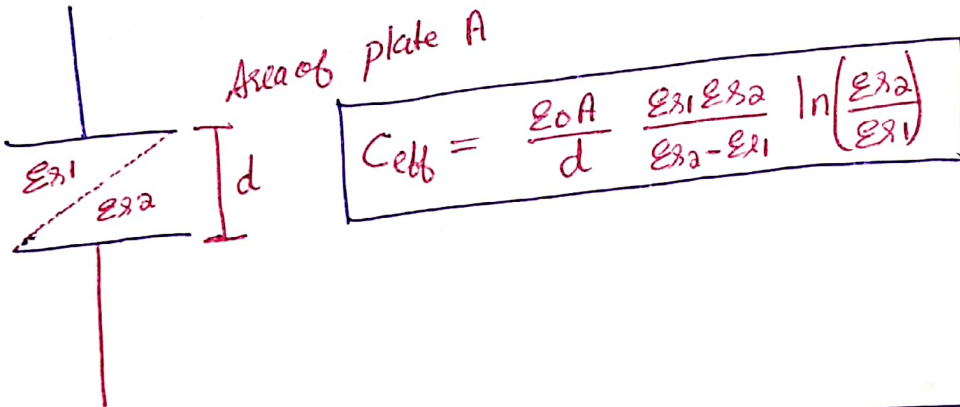 Area of plate A
εr1
εr2
d
Ceff = ε0A/d εr1 εr2/εr2-εr1 ln(εr2/εr1)